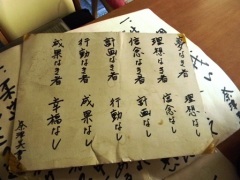 夢なき者 理想なし
理想なき者 信念なし
信念なき者 計画なし
計画なき者 行動なし
行動なき者 成果なし
成果なき者 幸福なし